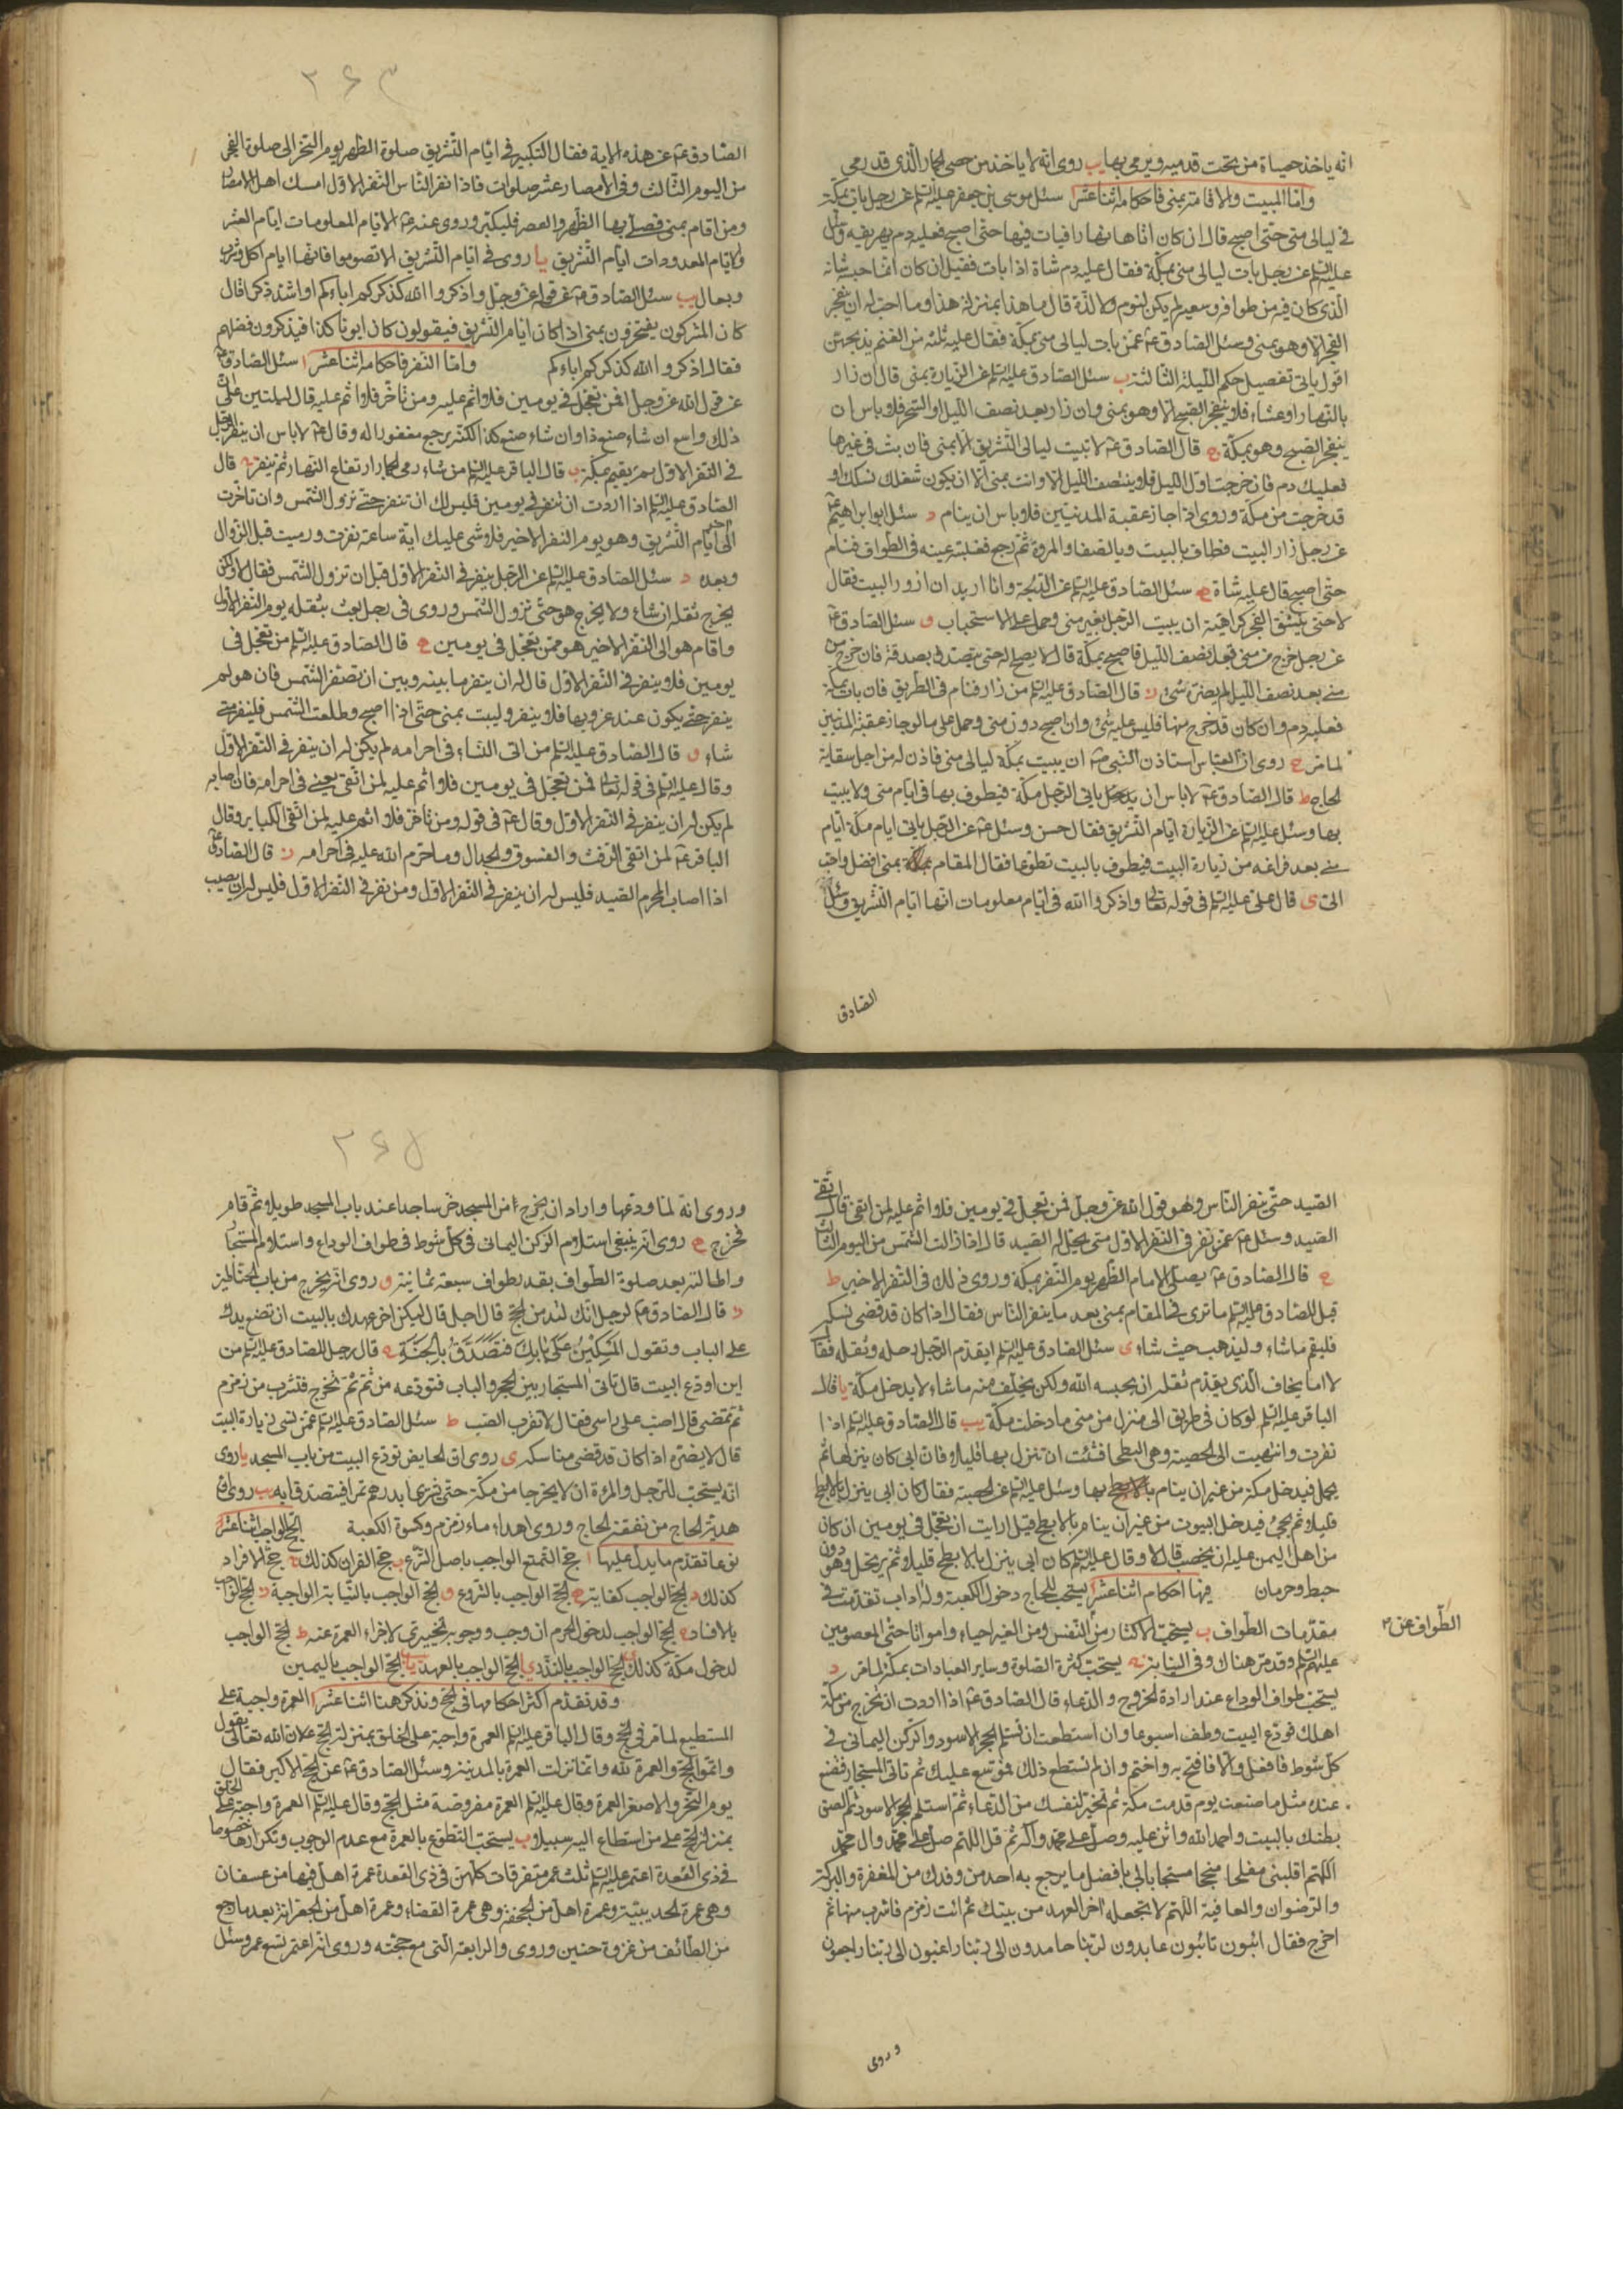 انه ياخذ حصاة من تحت قدميه ويرمي بها يب روى انه لا ياخذ من حصى الجمار الذى قد رمى
واما المبيت والاقامة بمنى فاحكامه اثنا عشر ا سئل موسى بن جعفر عليه السلم عن رجل بات بمكة
فى ليالى منى حتى اصبح قال ان كان اتاها نهارا فبات فيها حتى اصبح فعليه دم يهريقه وسئل
عليه السلم عن رجل بات ليالى منى بمكة فقال عليه دم شاة اذا بات فقيل ان كان انما حبسه شانه
الذى كان فيه من طوافه وسعيه لم يكن لنوم ولا لذة قال ما هذا بمنزلة هذا وما احب له ان ينفجر
الفجر الا وهو بمنى وسئل الصادق ع عمن بات ليالى منى بمكة فقال عليه ثلثة من الغنم يذبحهن
اقول ياتى تفصيل حكم الليلة الثالثة ب سئل الصادق عليه السلم عن الزيارة بمنى قال ان زار
بالنهار او عشاء فلا ينفجر الصبح الا وهو بمنى وان زار بعد نصف الليل او السحر فلا باس ان
ينفجر الصبح وهو بمكة ج قال الصادق ع لا تبت ليالى التشريق الا بمنى فان بت فى غيرها
فعليك دم فان خرجت اول الليل فلا ينتصف الليل الا وانت بمنى الا ان يكون شغلك نسك او
قد خرجت من مكة وروى اذا جاز عقبة المدنيين فلا باس ان ينام د سئل ابو ابراهيم ع
عن رجل زار البيت فطاف بالبيت وبالصفا والمروة ثم رجع فغلبته عينه فى الطواف فنام
حتى اصبح قال عليه شاة ه سئل الصادق عليه السلم عن الدلجة وانا اريد ان ازور البيت فقال
لا حتى ينشق الفجر كراهية ان يبيت الرجل بغير منى وحمل على الاستحباب و سئل الصادق ع
عن رجل خرج من منى قبل نصف الليل فاصبح بمكة قال لا يصلح له حتى يتصدق بصدقة فان خرج من
منى بعد نصف الليل لم يضره شىء ز قال الصادق عليه السلم من زار فنام فى الطريق فان بات بمكة
فعليه دم وان كان قد خرج منها فليس عليه شىء وان اصبح دون منى وحمل على ما لو جاز عقبة المدنيين
لما مر ح روى ان العباس استاذن النبى ص ان يبيت بمكة ليالى منى فاذن له من اجل سقاية
الحاج ط قال الصادق ع لا باس ان ياتى الرجل مكة فيطوف بها فى ايام منى ولا يبيت
بها وسئل عليه السلم عن الزيارة ايام التشريق فقال حسن وسئل ع عن الرجل ياتى ايام مكة ايام
منى بعد فراغه من زيارة البيت فيطوف بالبيت تطوعا فقال المقام بمنى افضل واحب
الى ى قال على عليه السلم فى قوله تعالى واذكروا الله فى ايام معلومات انها ايام التشريق وسئل
الصادق
٢٦٣
الصادق ع عن هذه الاية فقال التكبير فى ايام التشريق صلوة الظهر يوم النحر الى صلوة الفجر
من اليوم الثالث وفى الامصار عشر صلوات فاذا نفر الناس النفر الاول امسك اهل الامصار
ومن اقام بمنى فصلى بها الظهر والعصر فليكبر وروى عنه ع الايام المعلومات ايام العشر
والايام المعدودات ايام التشريق يا روى فى ايام التشريق لا تصوموا فانها ايام اكل وشرب
وبعال يب سئل الصادق ع عن قوله عز وجل واذكروا الله كذكركم اباءكم او اشد ذكرا قال
كان المشركون يفتخرون بمنى اذا كان ايام التشريق فيقولون كان ابونا كذا فيذكرون فضلهم
فقال اذكروا الله كذكركم اباءكم واما النفر فاحكامه اثنا عشر ا سئل الصادق ع
عن قول الله عز وجل فمن تعجل فى يومين فلا اثم عليه ومن تاخر فلا اثم عليه قال ليبتين على ان
ذلك واسع ان شاء صنع ذا وان شاء صنع كذا لكنه يرجع مغفورا له وقال ع لا باس ان ينفر الرجل
فى النفر الاول ثم يقيم بمكة ب قال الباقر عليه السلم من شاء رمى الجمار ارتفاع النهار ثم ينفر ج قال
الصادق عليه السلم اذا اردت ان تنفر فى يومين فليس لك ان تنفر حتى تزول الشمس وان تاخرت
الى اخر ايام التشريق وهو يوم النفر الاخير فلا شىء عليك اية ساعة نفرت ورميت قبل الزوال
وبعده د سئل الصادق عليه السلم عن الرجل ينفر فى النفر الاول قبل ان تزول الشمس فقال لا ولكن
يخرج ثقله ان شاء ولا يخرج هو حتى تزول الشمس وروى فى رجل بعث بثقله يوم النفر الاول
واقام هو الى النفر الاخير هو ممن تعجل فى يومين ه قال الصادق عليه السلم من تعجل فى
يومين فلا ينفر فى النفر الاول قال له ان ينفر ما بينه وبين ان تصفر الشمس فان هو لم
ينفر حتى يكون عند غروبها فلا ينفر وليبت بمنى حتى اذا اصبح وطلعت الشمس فلينفر متى
شاء و قال الصادق عليه السلم من اتى النساء فى احرامه لم يكن له ان ينفر فى النفر الاول
وقال عليه السلم فى قوله تعالى فمن تعجل فى يومين فلا اثم عليه لمن اتقى يعنى فى احرامه فان اصابه
لم يكن له ان ينفر فى النفر الاول وقال ع فى قوله ومن تاخر فلا اثم عليه لمن اتقى الكباير وقال
الباقر ع لمن اتقى الرفث والفسوق والجدال وما حرم الله عليه فى احرامه ز قال الصادق ع
اذا اصاب المحرم الصيد فليس له ان ينفر فى النفر الاول ومن نفر فى النفر الاول فليس له ان يصيب
الصيد حتى ينفر الناس وهو قول الله عز وجل فمن تعجل فى يومين فلا اثم عليه لمن اتقى قال اتقى
الصيد وسئل ع عمن نفر فى النفر الاول متى يحل له الصيد قال اذا زالت الشمس من اليوم الثالث
ح قال الصادق ع يصلى الامام الظهر يوم النفر بمكة وروى ذلك فى النفر الاخير ط
قيل للصادق عليه السلم ما ترى فى المقام بمنى بعد ما ينفر الناس فقال اذا كان قد قضى نسكه
فليقم ما شاء وليذهب حيث شاء ى سئل الصادق عليه السلم ايقدم الرجل رحله وثقله فقال
لا اما يخاف الذى يقدم ثقله ان يحبسه الله ولكن يخلف منه ما شاء لا يدخل مكة يا قال
الباقر عليه السلم لو كان فى طريق الى منزل من منى ما دخلت مكة يب قال الصادق عليه السلم اذا
نفرت وانتهيت الى الحصبة وهى البطحا فشئت ان تنزل بها قليلا فان ابى كان ينزلها ثم
يحمل فيدخل مكة من غير ان ينام بها وسئل عليه السلم عن الحصبة فقال كان ابى ينزل بالابطح
قليلا ثم يجىء فيدخل البيوت من غير ان ينام بالابطح قيل ارايت ان تعجل فى يومين ان كان
من اهل اليمن عليه ان يحصب قال لا وقال عليه السلم كان ابى ينزل بالابطح قليلا ثم يرتحل وهو دون
خبط وحرمان فيها احكام اثنا عشر ا يستحب للحاج دخول الكعبة وله اداب تقدمت فى
مقدمات الطواف ب يستحب الاكثار من النفس ومن الغير احياء وامواتا حتى المعصومين
الطواف عن
عليهم السلم وقدم هناك وفى النيابة ج يستحب كثرة الصلوة وساير العبادات بمكة لما مر د
يستحب طواف الوداع عند ارادة الخروج والدعاء قال الصادق ع اذا اردت ان تخرج من مكة
اهلك فودع البيت وطف اسبوعا وان استطعت ان تستلم الحجر الاسود والركن اليمانى فى
كل شوط فافعل والا فافتح به واختم وان لم تستطع ذلك فموسع عليك ثم تاتى المستجار فتصنع
عنده مثل ما صنعت يوم قدمت مكة ثم تخير لنفسك من الدعاء ثم استلم الحجر الاسود ثم الصق
بطنك بالبيت واحمد الله واثن عليه وصل على محمد واله ثم قل اللهم صل على محمد وال محمد
اللهم اقلبنى مفلحا منجحا مستجابا لى بافضل ما يرجع به احد من وفدك من المغفرة والبركة
والرضوان والعافية اللهم لا تجعله اخر العهد من بيتك ثم ائت زمزم فاشرب منها ثم
اخرج فقال ائبون تائبون عابدون لربنا حامدون الى ربنا راغبون الى ربنا راجعون
وروى
٢٦٤
وروى انه لما ودعها واراد ان يخرج من المسجد خر ساجدا عند باب المسجد طويلا ثم قام
فخرج ه روى انه ينبغى استلام الركن اليمانى فى كل شوط فى طواف الوداع واستلام المستجار
واطالته بعد صلوة الطواف بقدر طواف سبعة ثمانية و روى انه يخرج من باب الحناطين
ز قال الصادق ع لرجل انك لتدمن الحج قال اجل قال ليكن اخر عهدك بالبيت ان تضع يدك
على الباب وتقول المسكين على بابك فتصدق بالجنة ح قال رجل للصادق عليه السلم من
اين اودع البيت قال تاتى المستجار بين الحجر والباب فتودعه من ثم ثم تخرج فتشرب من زمزم
ثم تمضى قال اصب على راسى فقال لا تقرب الصب ط سئل الصادق عليه السلم عمن نسى زيارة البيت
قال لا يضره اذا كان قد قضى مناسكه ى روى ان الحايض تودع البيت من باب المسجد يا روى
انه يستحب للرجل والمرءة ان لا يخرجا من مكة حتى يشتريا بدرهم تمرا فيتصدقا به يب روى ان
هدية الحاج من نفقة الحاج وروى اهداء ماء زمزم وكسوة الكعبة الحج الواجب اثنا عشر
نوعا تقدم ما يدل عليها ا حج التمتع الواجب باصل الشرع ب حج القران كذلك ج حج الافراد
كذلك د الحج الواجب كفاية ه الحج الواجب بالشروع و الحج الواجب بالنيابة الواجبة ز الحج الواجب
بالافساد ح الحج الواجب لدخول الحرم ان وجب ووجوبه تخييرى لاجزاء العمرة عنه ط الحج الواجب
لدخول مكة كذلك ى الحج الواجب بالنذر يا الحج الواجب بالعهد يب الحج الواجب باليمين
وقد تقدم اكثر احكامها فى الحج ونذكر هنا اثنا عشر ا العمرة واجبة على
المستطيع لما مر فى الحج وقال الباقر عليه السلم العمرة واجبة على الخلق بمنزلة الحج لان الله تعالى يقول
واتموا الحج والعمرة لله وانما نزلت العمرة بالمدينة وسئل الصادق ع عن الحج الاكبر فقال
يوم النحر والاصغر العمرة وقال عليه السلم العمرة مفروضة مثل الحج وقال عليه السلم العمرة واجبة على الخلق
بمنزلة الحج على من استطاع اليه سبيلا ب يستحب التطوع بالعمرة مع عدم الوجوب وتكرارها خصوصا
فى ذى القعدة اعتمر عليه السلم ثلث عمر متفرقات كلهن فى ذى القعدة عمرة اهل فيها من عسفان
وهى عمرة الحديبية وعمرة اهل من الجحفة وهى عمرة القضاء وعمرة اهل من الجعرانة بعد ما رجع
من الطائف من غزوة حنين وروى والرابعة التى مع حجته وروى انه اعتمر تسع عمر وسئل